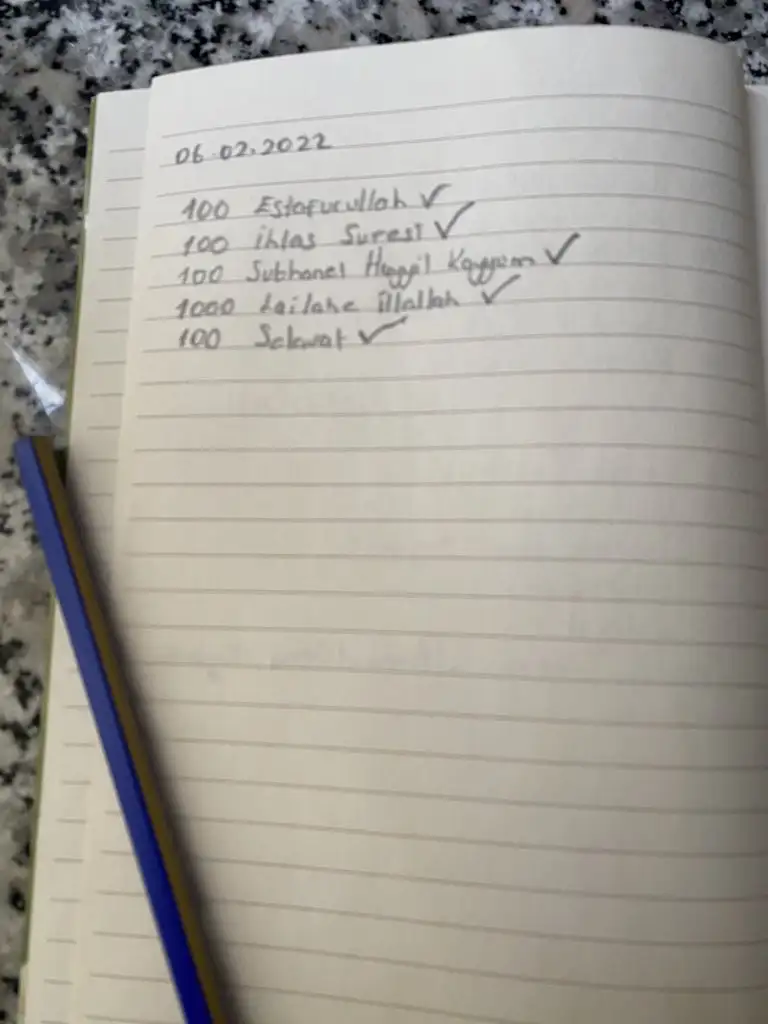 06.02.2022
100 Estafurullah ✓
100 ihlas Suresi ✓
100 Subhanel Hayyil Kayyum ✓
1000 Lailahe illallah ✓
100 Selavat ✓